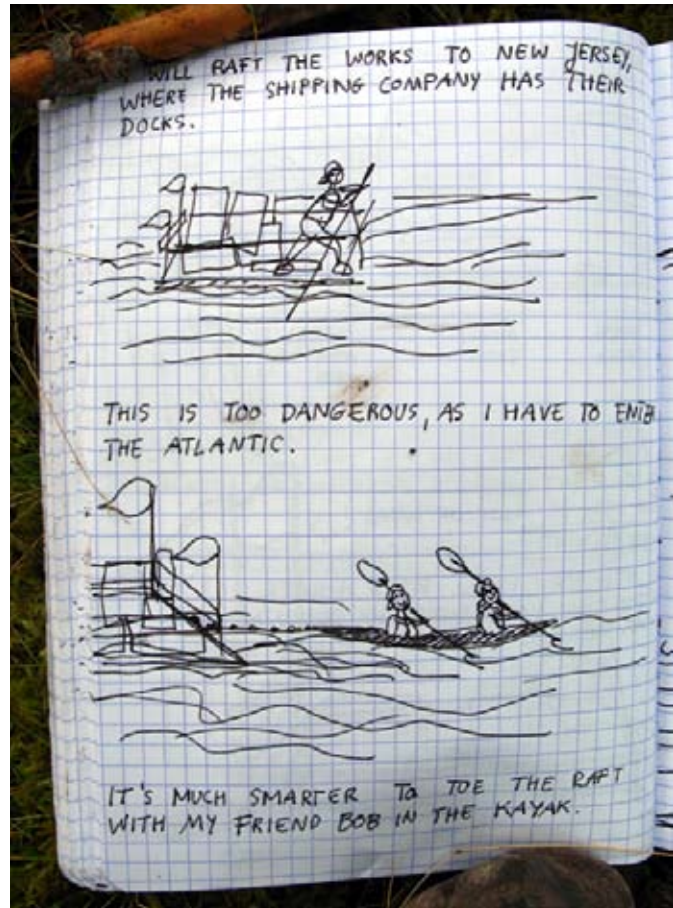 WILL RAFT THE WORKS TO NEW JERSEY,
WHERE THE SHIPPING COMPANY HAS THEIR
DOCKS.
THIS IS TOO DANGEROUS, AS I HAVE TO
THE ATLANTIC.
IT'S MUCH SMARTER TO TOE THE RAFT
WITH MY FRIEND BOB IN THE KAYAK.